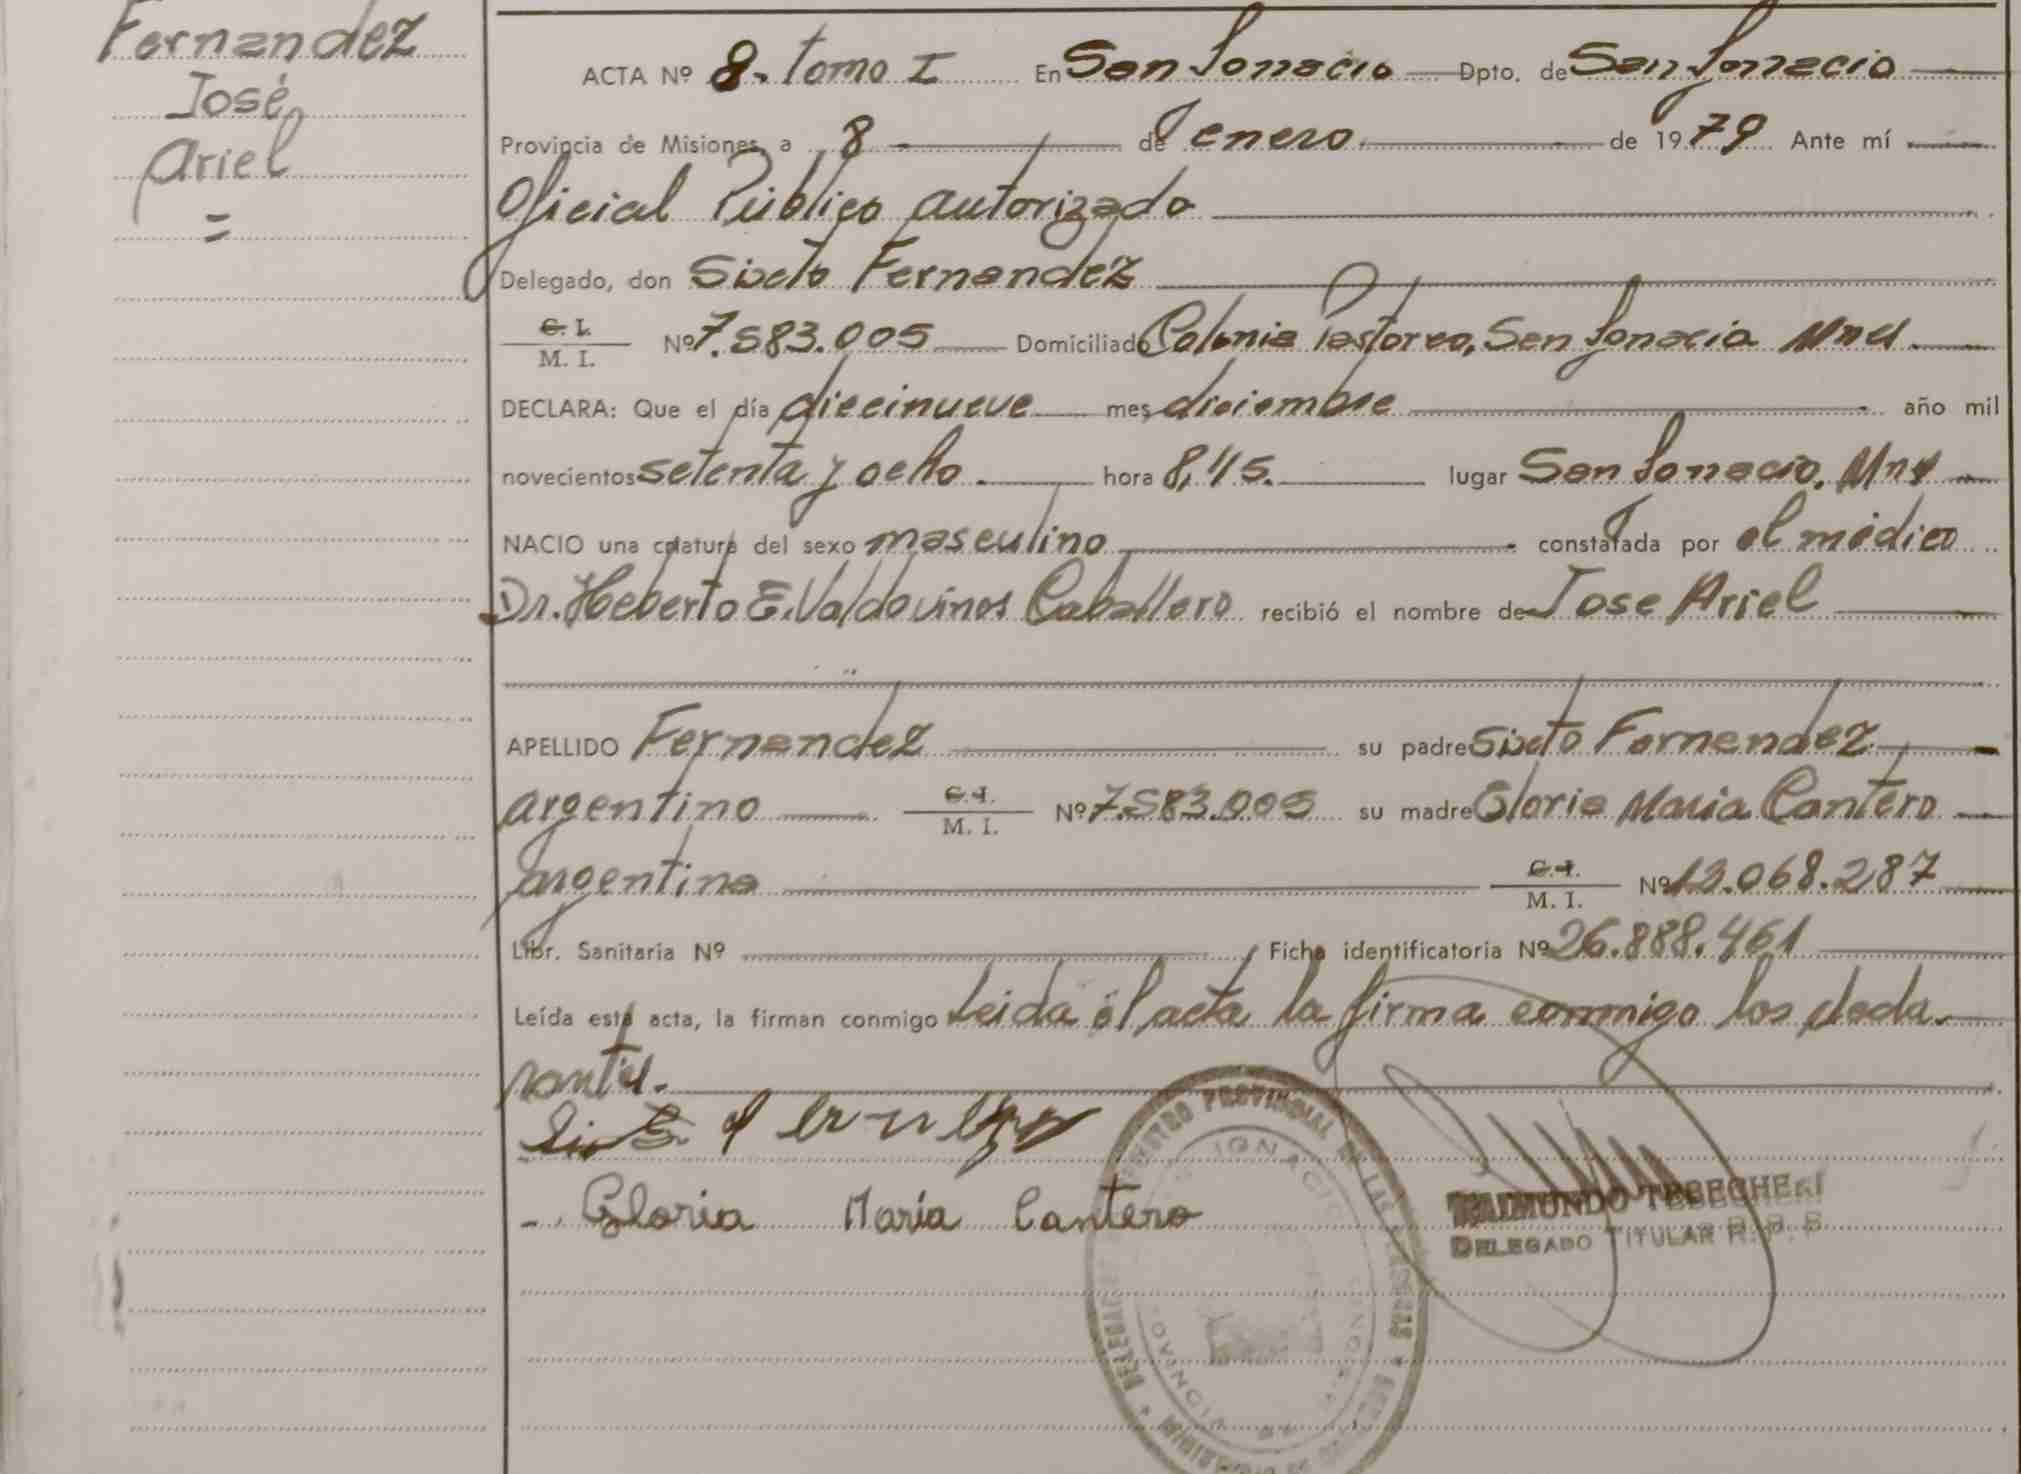 Fernandez
José
Ariel
=
ACTA Nº 8. tomo I En San Ignacio Dpto. de San Ignacio
Provincia de Misiones, a 8 de enero de 1979 Ante mí
Oficial Público autorizado
Delegado, don Sixto Fernandez
C. I.
M. I. Nº 7.583.005 Domiciliado Colonia Pastoreo, San Ignacio Mnes
DECLARA: Que el día diecinueve mes diciembre año mil
novecientos setenta y ocho hora 8,15. lugar San Ignacio. Mnes
NACIO una criatura del sexo masculino constatada por el médico
Dr. Heberto E. Valdovinos Caballero recibió el nombre de Jose Ariel
APELLIDO Fernandez su padre Sixto Fernandez
argentino C. I.
M. I. Nº 7.583.005 su madre Gloria Maria Cantero
argentina C. I.
M. I. Nº 12.068.287
Libr. Sanitaria Nº Ficha identificatoria Nº 26.888.461
Leída esta acta, la firman conmigo Leida el acta la firma conmigo los decla-
rantes.
Gloria María Cantero
REGISTRO PROVINCIAL DE LAS PERSONAS
IGNACIO
RAIMUNDO
DELEGADO TITULAR R. P. P.